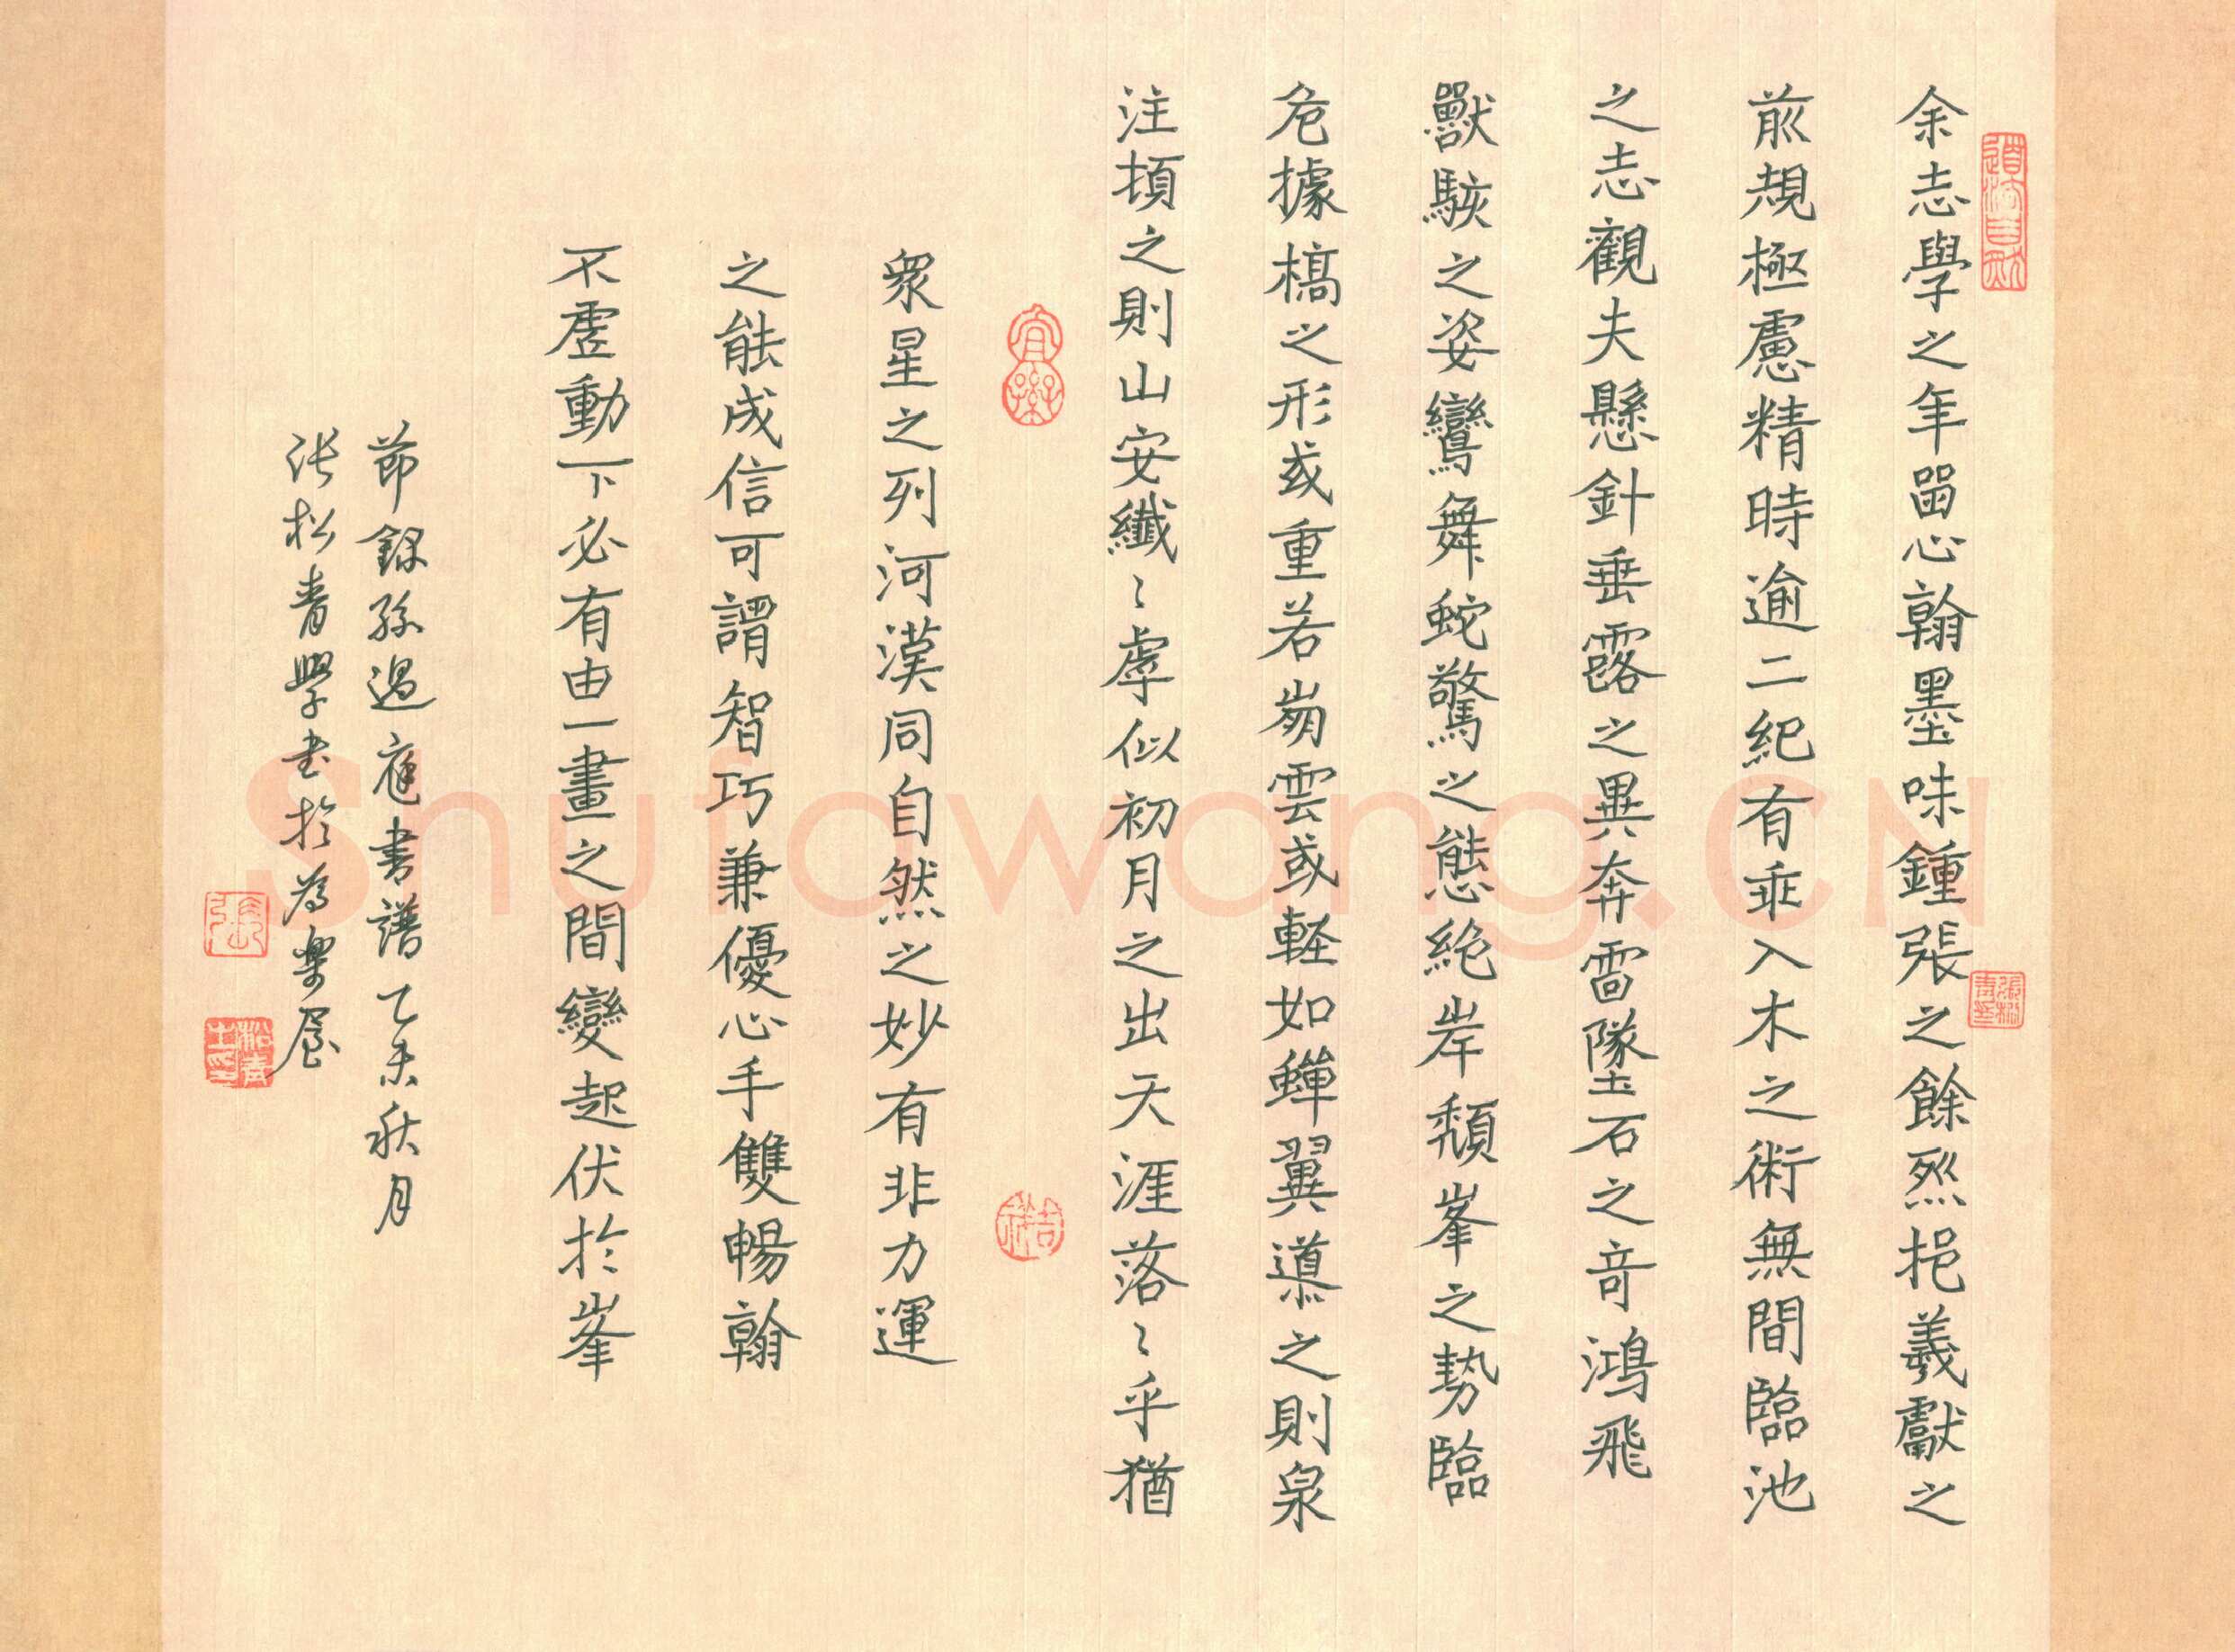 余志學之年留心翰墨味鍾張之餘烈挹羲獻之
前規極慮精時逾二紀有乖入木之術無間臨池
之志觀夫懸針垂露之異奔雷墜石之奇鴻飛
獸駭之姿鸞舞蛇驚之態絶岸頹峯之勢臨
危據槁之形或重若崩雲或輕如蟬翼導之則泉
注頓之則山安纖〻虖似初月之出天涯落〻乎猶
衆星之列河漢同自然之妙有非力運
之能成信可謂智巧兼優心手雙暢翰
不虛動下必有由一畫之間變起伏於峯
節錄孫過庭書譜乙未秋月
張松青學書於為樂居
道法自然
宜樂
吉祥
張
Shufawang.CN